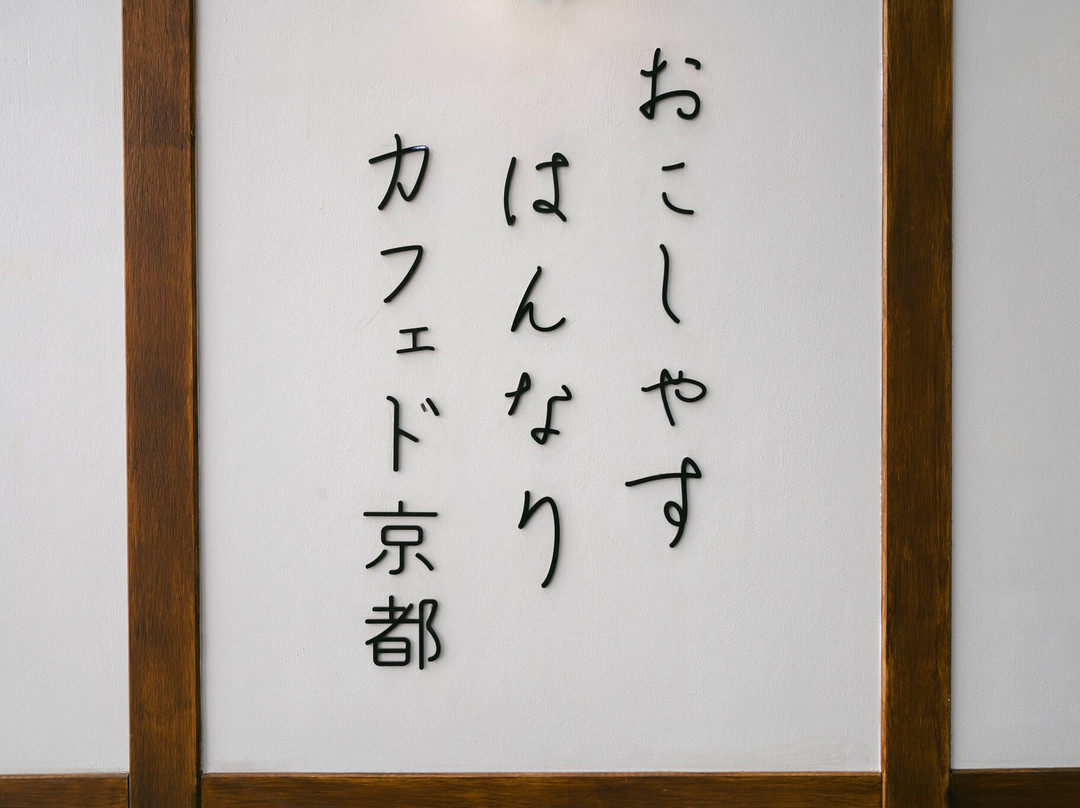 おこしやす
はんなり
カフェド京都